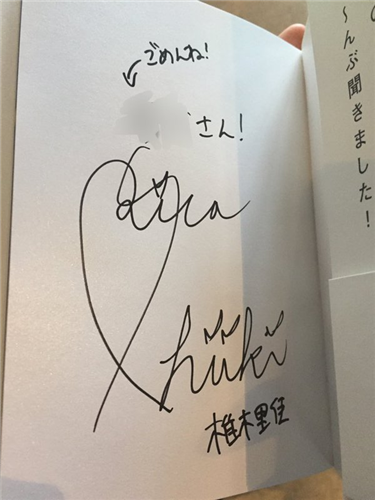 ごめんね!
さん!
Rika
Shiiki
椎木里佳
〜んぶ聞きました!